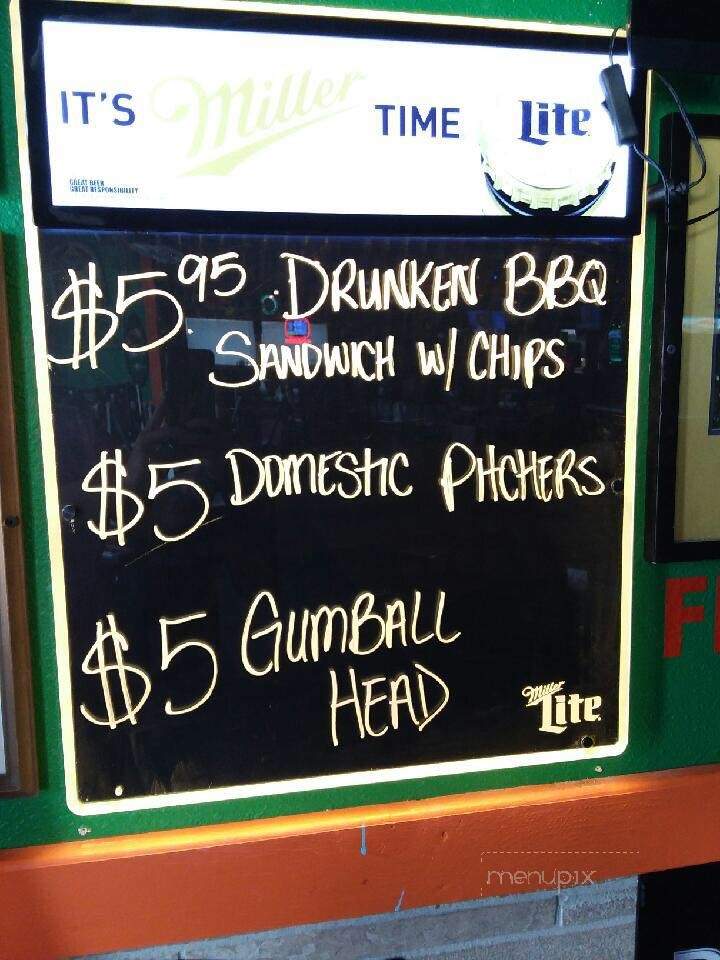 IT'S Miller TIME Lite
GREAT BEER
GREAT RESPONSIBILITY
$5.95 DRUNKEN BBQ
SANDWICH W/ CHIPS
$5 DOMESTIC PITCHERS
$5 GUMBALL
HEAD
Miller
Lite
F
menupix